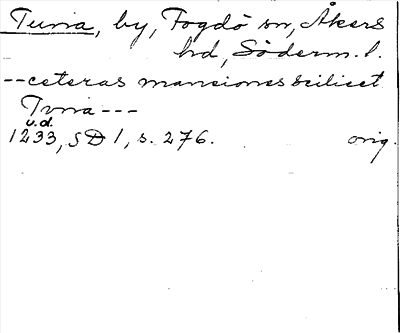 Tuna, by, Fogdö sn, Åkers
hd, Söderm. l.
--ceteras mansiones scilicet
Tvna ---
u.d.
1233, SD 1, s. 276. orig.